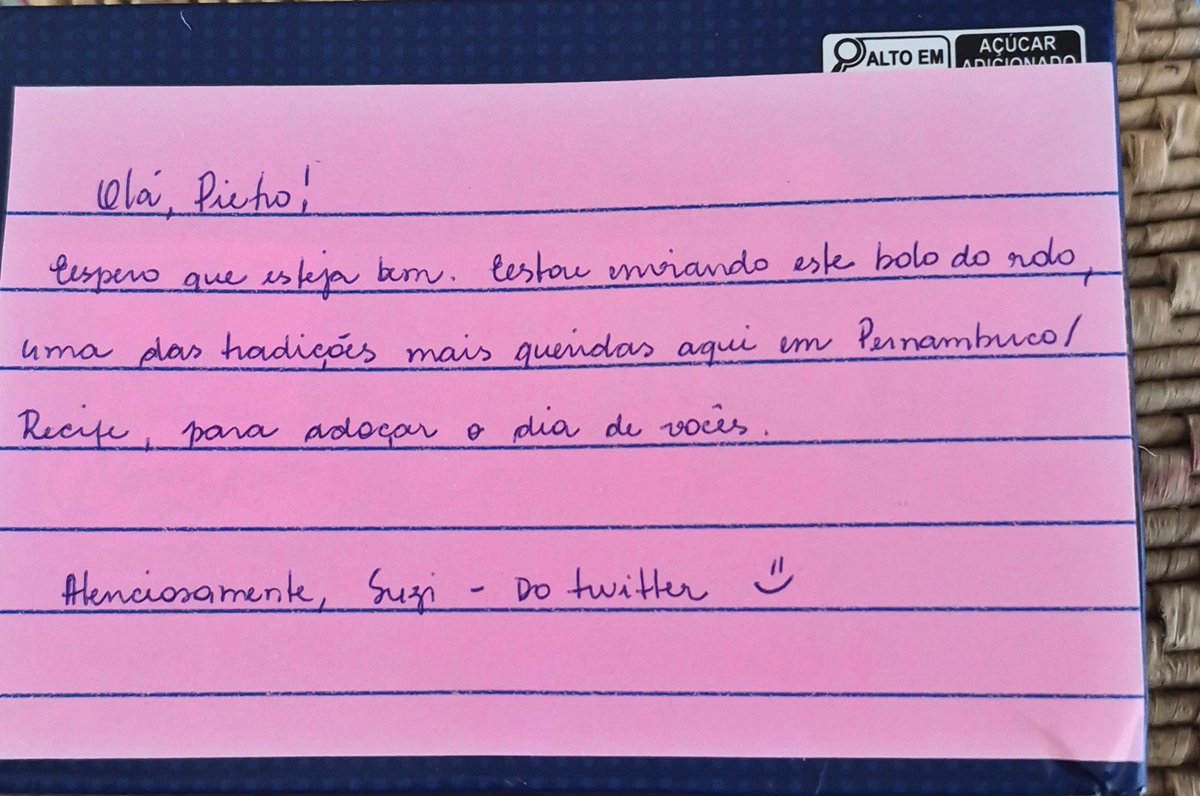 ALTO EM
AÇÚCAR
ADICIONADO
Olá, Pietro!
Espero que esteja bem. Estou enviando este bolo do rolo,
uma das tradições mais queridas aqui em Pernambuco/
Recife, para adoçar o dia de vocês.
Atenciosamente, Suzi - Do twitter